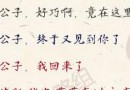 公子，好巧啊，竟在这里
公子，终于又见到你了
公子，我回来了